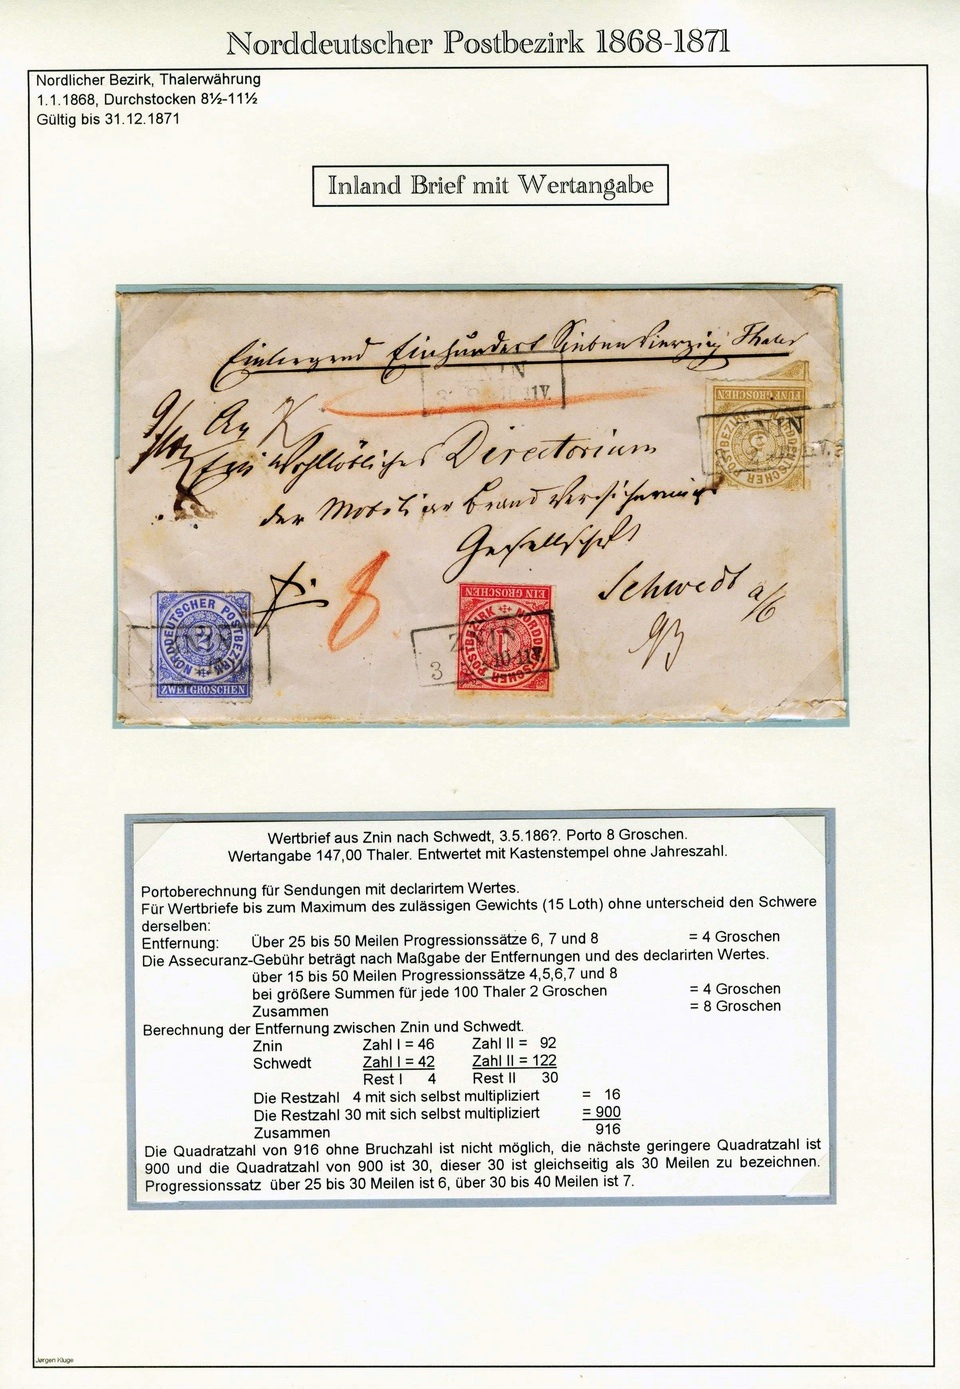 Norddeutscher Postbezirk 1868-1871
Nordlicher Bezirk, Thalerwährung
1.1.1868, Durchstocken 8½-11½
Gültig bis 31.12.1871
Inland Brief mit Wertangabe
Einliegend Einhundert Sieben Vierzig Thaler
ZNIN
11V.
FÜNF GROSCHEN
NORDDEUTSCHER POSTBEZIRK
5
ZNIN
An
Ein Wohllöbliches Directorium
der Mobiliar Brand Versicherungs
Gesellschaft
Schwedt a/O
8
NORDDEUTSCHER POSTBEZIRK
2
ZWEI GROSCHEN
EIN GROSCHEN
NORDDEUTSCHER POSTBEZIRK
1
ZNIN
3 10-11V.
Wertbrief aus Znin nach Schwedt, 3.5.186?. Porto 8 Groschen.
Wertangabe 147,00 Thaler. Entwertet mit Kastenstempel ohne Jahreszahl.
Portoberechnung für Sendungen mit declarirtem Wertes.
Für Wertbriefe bis zum Maximum des zulässigen Gewichts (15 Loth) ohne unterscheid den Schwere
derselben:
Entfernung: Über 25 bis 50 Meilen Progressionssätze 6, 7 und 8 = 4 Groschen
Die Assecuranz-Gebühr beträgt nach Maßgabe der Entfernungen und des declarirten Wertes.
über 15 bis 50 Meilen Progressionssätze 4,5,6,7 und 8
bei größere Summen für jede 100 Thaler 2 Groschen = 4 Groschen
Zusammen = 8 Groschen
Berechnung der Entfernung zwischen Znin und Schwedt.
Znin Zahl I = 46 Zahl II = 92
Schwedt Zahl I = 42 Zahl II = 122
Rest I 4 Rest II 30
Die Restzahl 4 mit sich selbst multipliziert = 16
Die Restzahl 30 mit sich selbst multipliziert = 900
Zusammen 916
Die Quadratzahl von 916 ohne Bruchzahl ist nicht möglich, die nächste geringere Quadratzahl ist
900 und die Quadratzahl von 900 ist 30, dieser 30 ist gleichseitig als 30 Meilen zu bezeichnen.
Progressionssatz über 25 bis 30 Meilen ist 6, über 30 bis 40 Meilen ist 7.
Jørgen Kluge